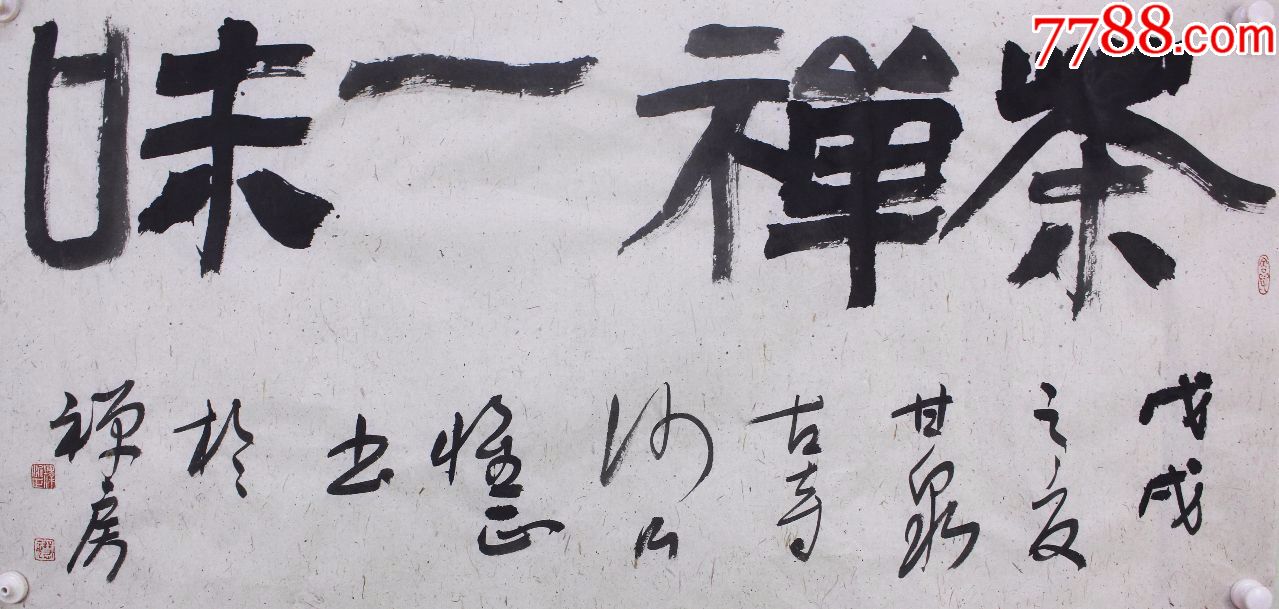 7788.com
茶禪一味
戊戌
之夏
甘泉
古寺
沙门
惟正
书
於
禅房